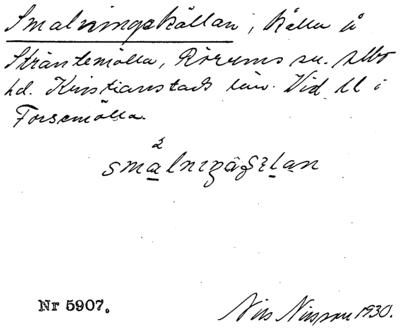 Smalningskällan, källa å
Sträntemölla, Rörums sn. Albo
hd. Kristianstads län. Vid ll i
Forsemölla.
2
smalnıgaşɛlan
Nr 5907.
Nils Nilsson 1930.